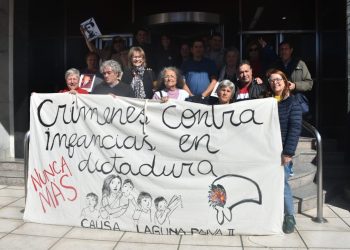 Crímenes contra
infancias en
dictadura
NUNCA
MÁS
CAUSA LAGUNA PAIVA II